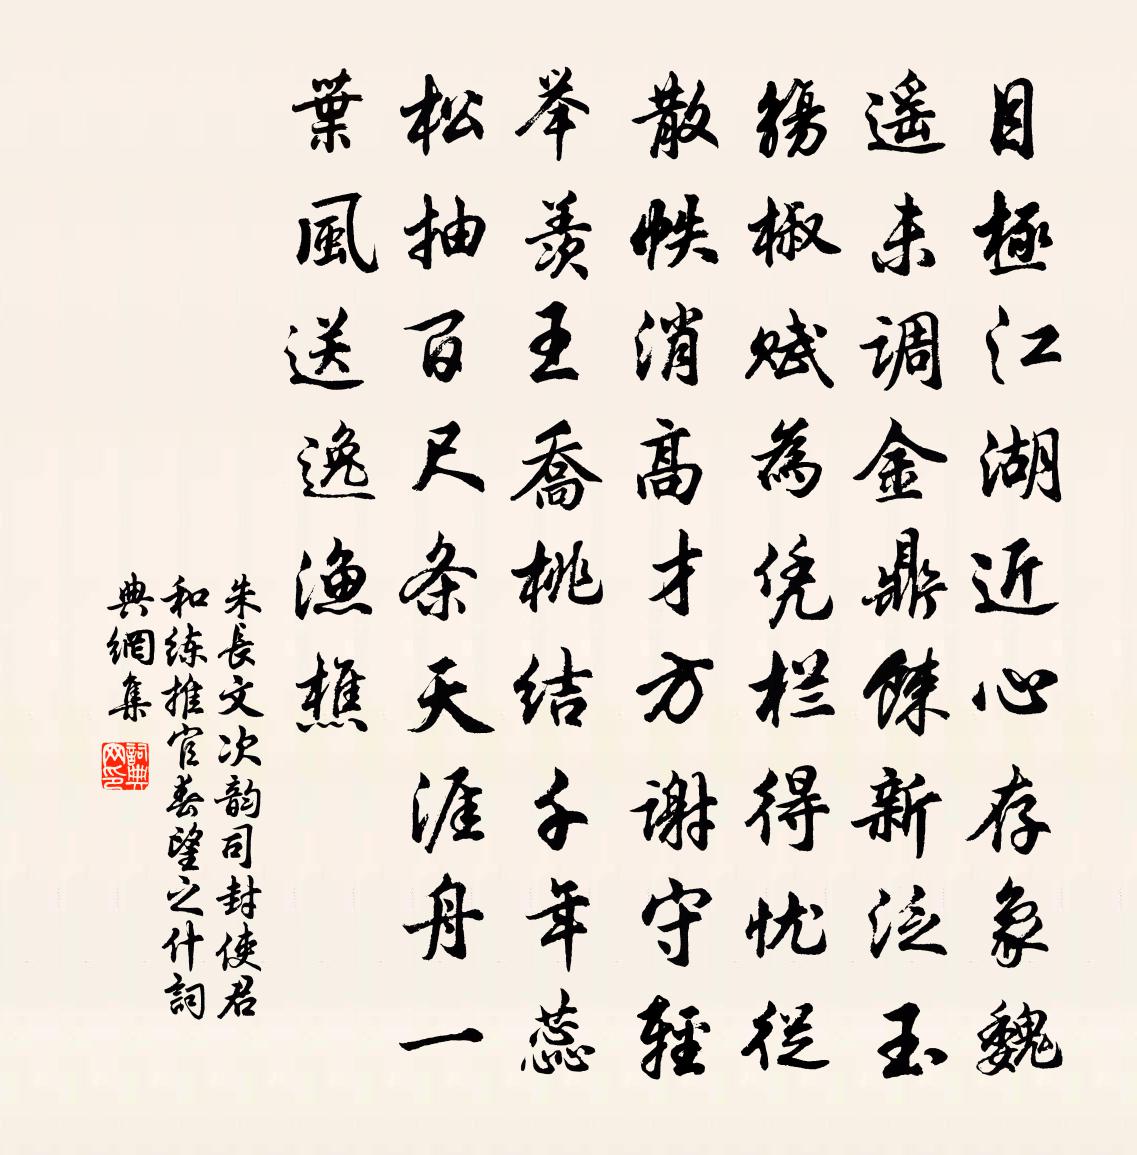 目極江湖近心存象魏
遥未调金鼎餗新泛玉
觴椒赋為凭栏得忧從
散帙消高才方谢守輕
举羨王喬桃结千年蕊
松抽百尺条天涯舟一
葉風送逸漁樵
朱長文次韵司封使君
和练推官春望之什詞
典網集
詞典网印